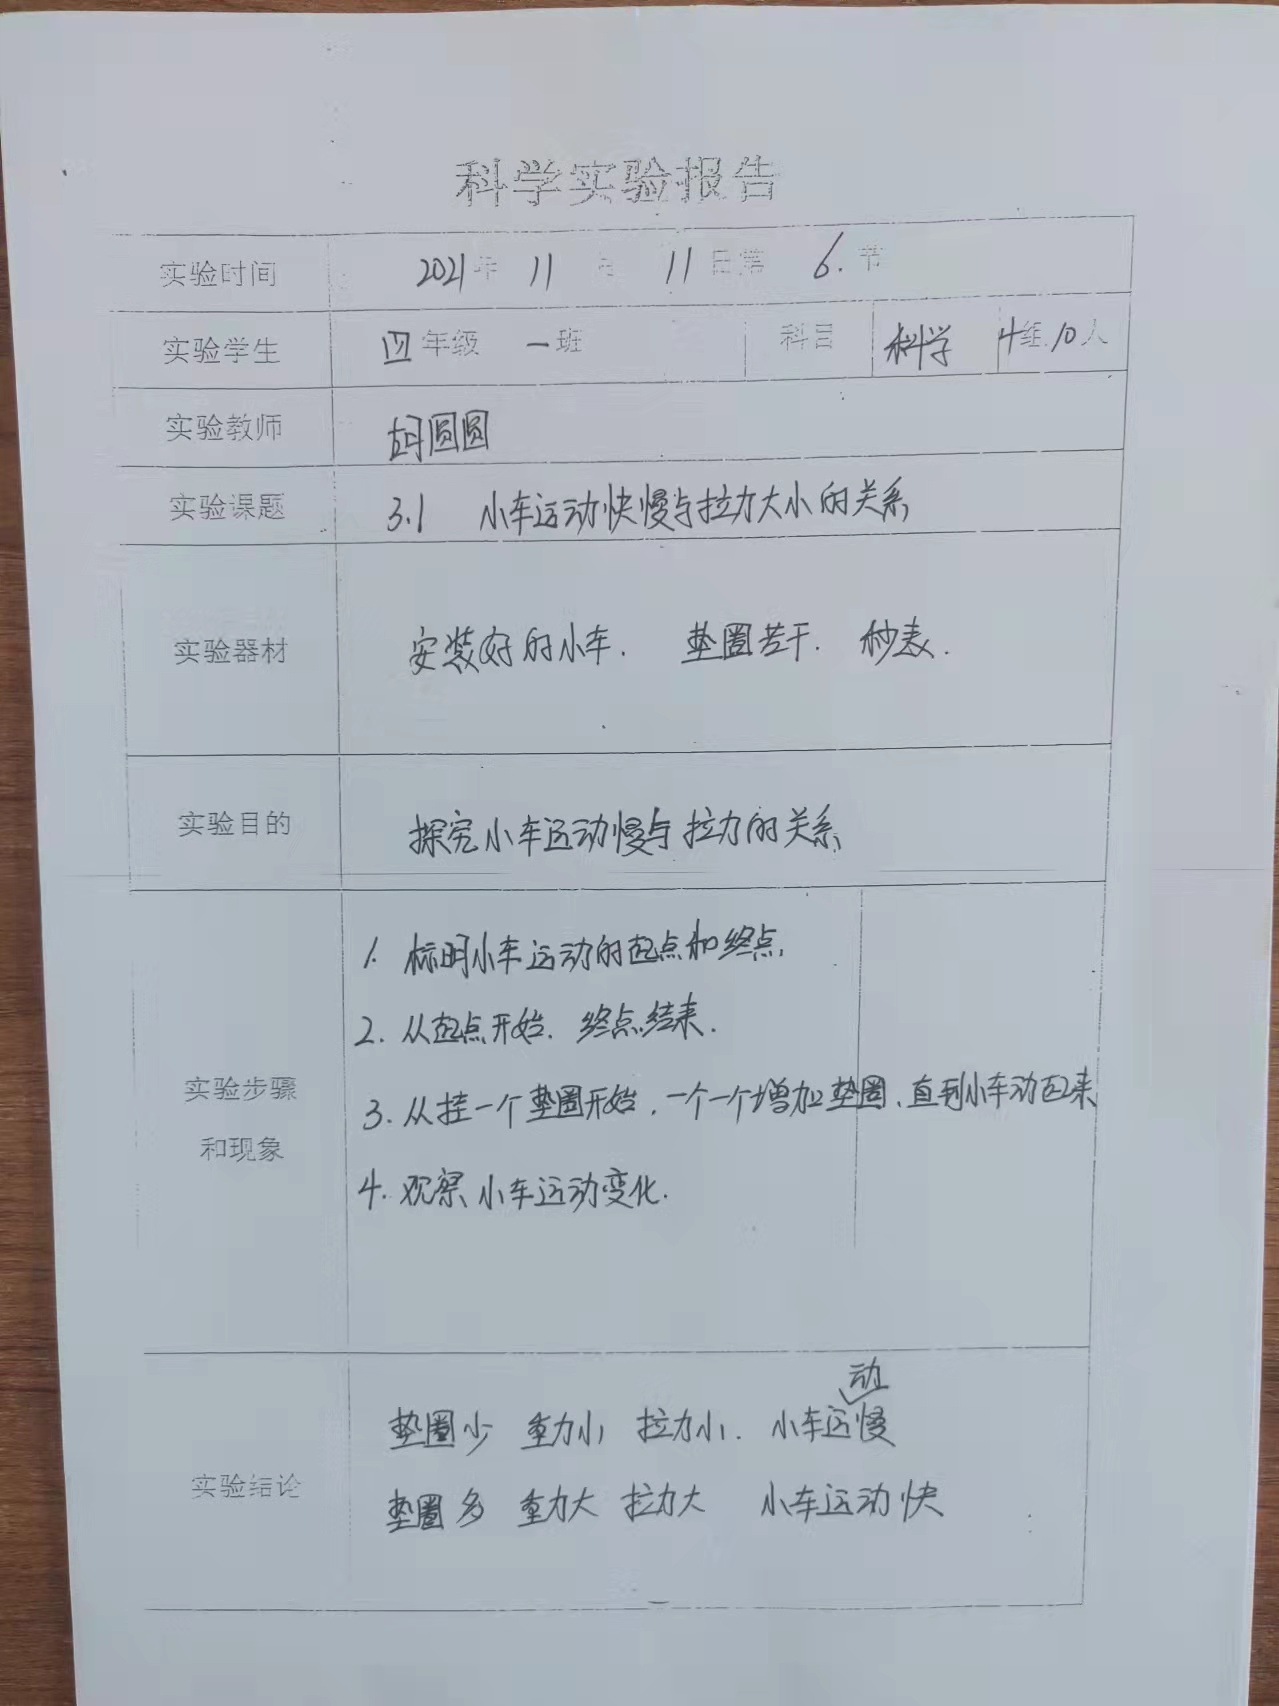 科学实验报告
实验时间 2021年 11 月 11日第 6.节
实验学生 四年级 一班 科目 科学 4组10人
实验教师 胡圆圆
实验课题 3.1 小车运动快慢与拉力大小的关系
实验器材 安装好的小车. 垫圈若干. 秒表.
实验目的 探究小车运动慢与拉力的关系
1. 标明小车运动的起点和终点.
2. 从起点开始. 终点结束.
实验步骤
3. 从挂一个垫圈开始, 一个一个增加垫圈、直到小车动起来
和现象
4. 观察小车运动变化.
动
垫圈少 重力小 拉力小. 小车运慢
实验结论
垫圈多 重力大 拉力大 小车运动快